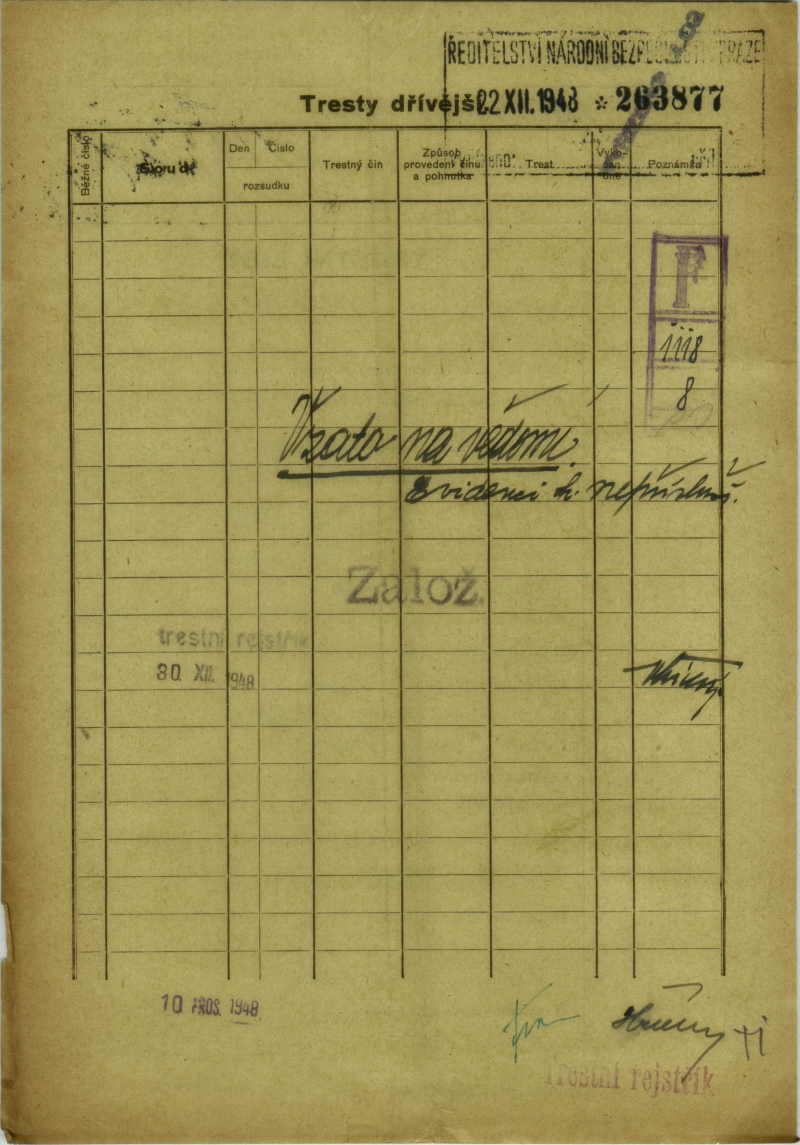 ŘEDITELSTVÍ NÁRODNÍ BEZPEČNOSTI PRAZE
Tresty dřívější
22 XII. 1948 * 263877
Běžné číslo
Sboru di
Den
Číslo
rozsudku
Trestný čin
Způsob
provedení činu
a pohnutka
Trest
Poznámka
F
1118
8
Vzato na vědomí.
Evidenci
Založ.
trestní rejstřík
30. XII. 1948
10 PROS. 1948
Trestní rejstřík